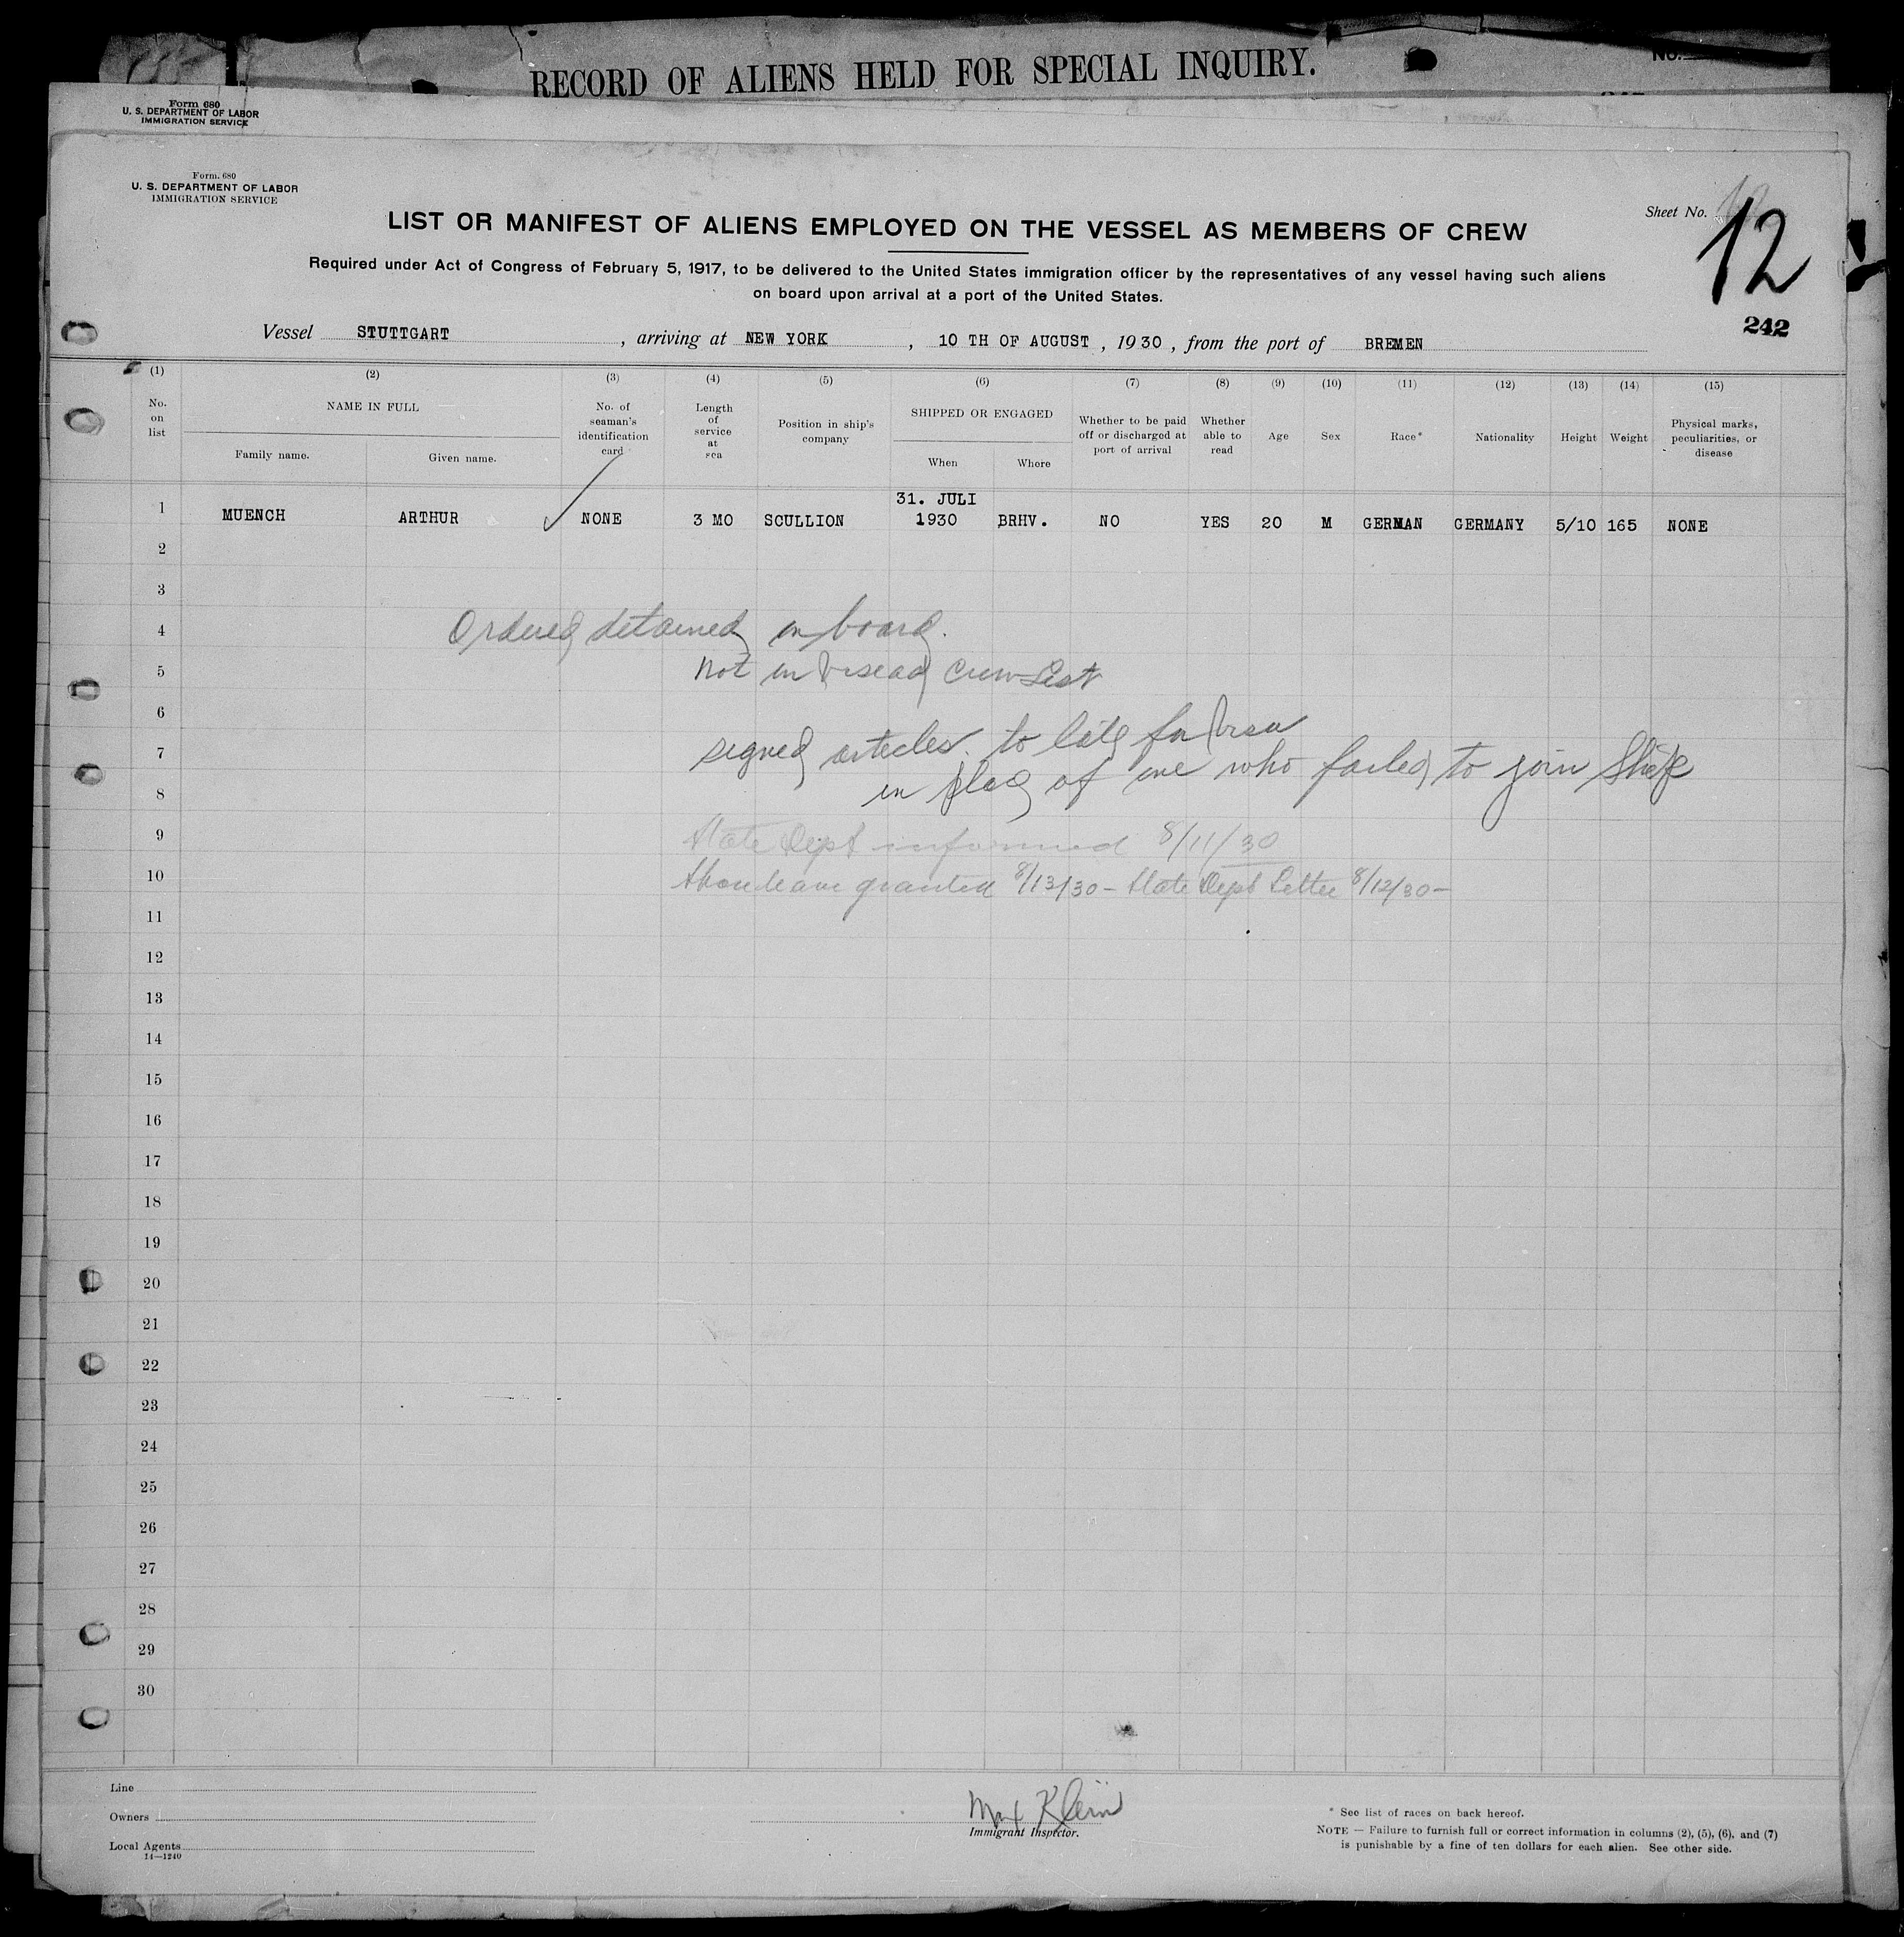 RECORD OF ALIENS HELD FOR SPECIAL INQUIRY.
No.
Form 680
U. S. DEPARTMENT OF LABOR
IMMIGRATION SERVICE
Form. 680
U. S. DEPARTMENT OF LABOR
IMMIGRATION SERVICE
Sheet No. 12
LIST OR MANIFEST OF ALIENS EMPLOYED ON THE VESSEL AS MEMBERS OF CREW
Required under Act of Congress of February 5, 1917, to be delivered to the United States immigration officer by the representatives of any vessel having such aliens
on board upon arrival at a port of the United States.
242
Vessel STUTTGART, arriving at NEW YORK, 10 TH OF AUGUST, 1930, from the port of BREMEN
(1) (2) (3) (4) (5) (6) (7) (8) (9) (10) (11) (12) (13) (14) (15)
No. on list
NAME IN FULL
Family name. Given name.
No. of seaman's identification card
Length of service at sea
Position in ship's company
SHIPPED OR ENGAGED
When Where
Whether to be paid off or discharged at port of arrival
Whether able to read
Age
Sex
Race*
Nationality
Height
Weight
Physical marks, peculiarities, or disease
1 MUENCH ARTHUR NONE 3 MO SCULLION 31. JULI 1930 BRHV. NO YES 20 M GERMAN GERMANY 5/10 165 NONE
2
3
4 Ordered detained on board.
5 not in visead Crew List
6
7 signed articles. to late for visa
8 in place of one who failed to join Ship
9 State Dept informed 8/11/30
10 Shore leave granted 8/13/30 - State Dept Letter 8/12/30 -
11
12
13
14
15
16
17
18
19
20
21
22
23
24
25
26
27
28
29
30
Line
Owners
Local Agents
14—1240
Max Klein
Immigrant Inspector.
* See list of races on back hereof.
NOTE — Failure to furnish full or correct information in columns (2), (5), (6), and (7)
is punishable by a fine of ten dollars for each alien. See other side.